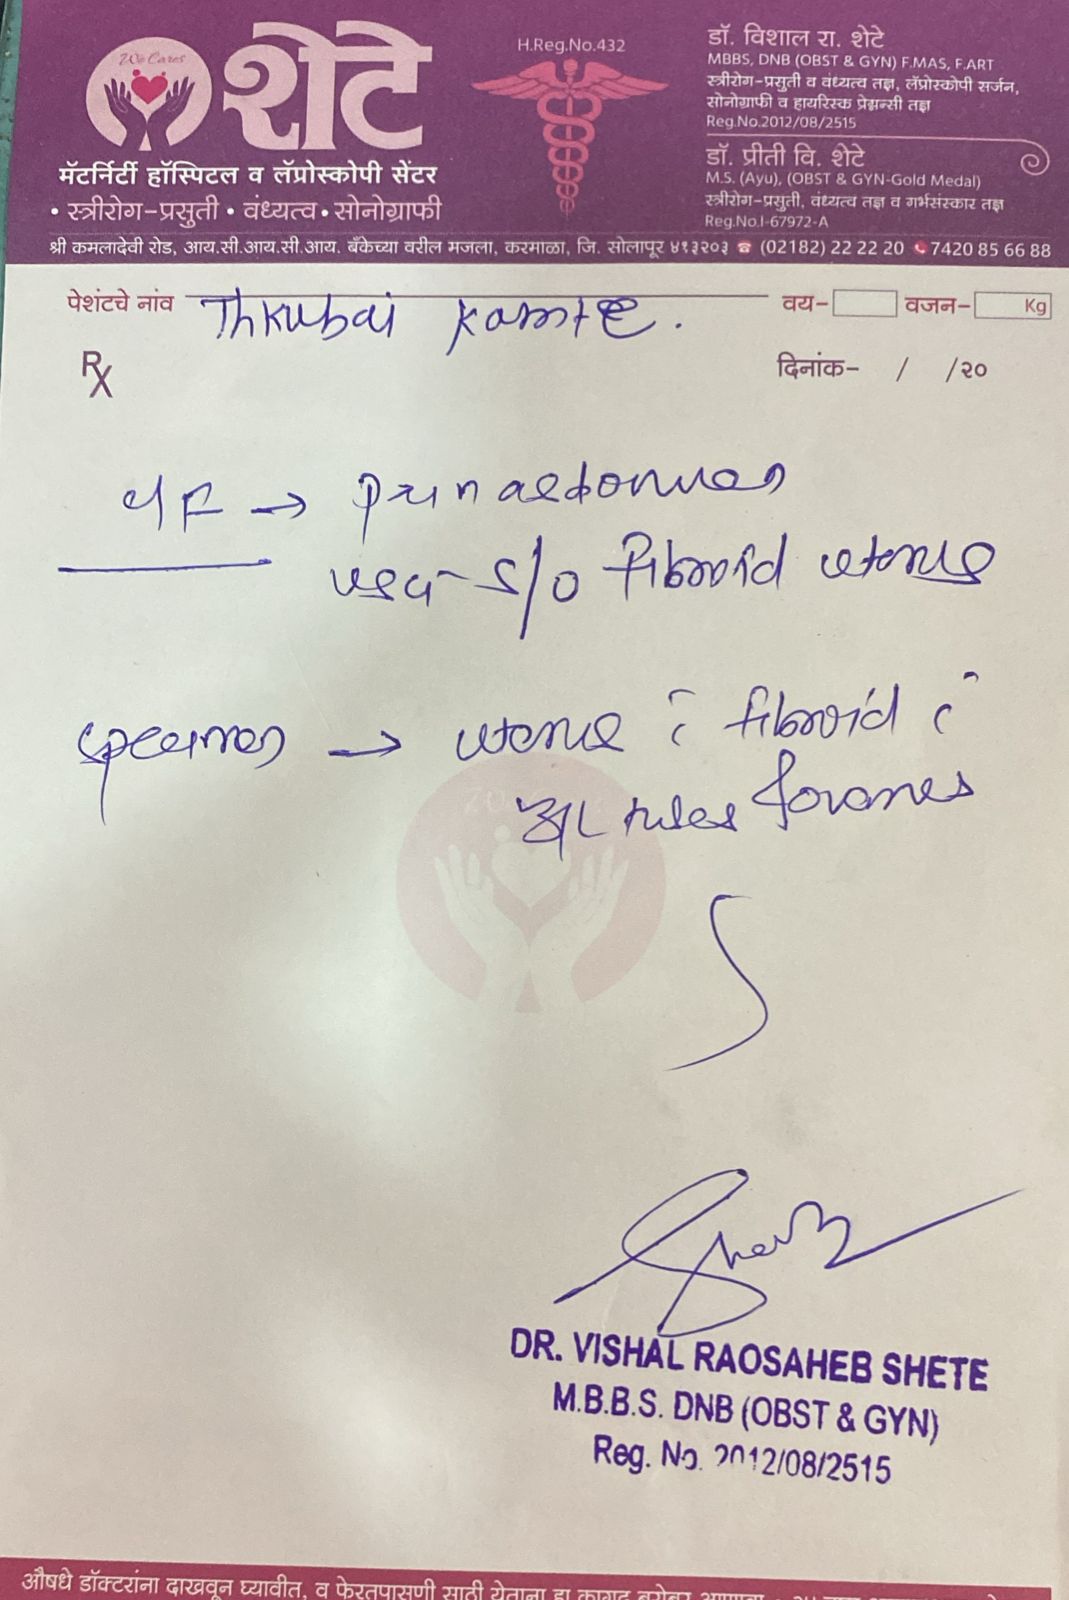 We Cares
शेटे
मॅटर्निटी हॉस्पिटल व लॅप्रोस्कोपी सेंटर
• स्त्रीरोग-प्रसुती • वंध्यत्व • सोनोग्राफी
H.Reg.No.432
डॉ. विशाल रा. शेटे
MBBS, DNB (OBST & GYN) F.MAS, F.ART
स्त्रीरोग-प्रसुती व वंध्यत्व तज्ञ, लॅप्रोस्कोपी सर्जन,
सोनोग्राफी व हायरिस्क प्रेग्नन्सी तज्ञ
Reg.No.2012/08/2515
डॉ. प्रीती वि. शेटे
M.S. (Ayu), (OBST & GYN-Gold Medal)
स्त्रीरोग-प्रसुती, वंध्यत्व तज्ञ व गर्भसंस्कार तज्ञ
Reg.No.I-67972-A
श्री कमलादेवी रोड, आय.सी.आय.सी.आय. बँकेच्या वरील मजला, करमाळा, जि. सोलापूर ४१३२०३ ☎ (02182) 22 22 20 📞 7420 85 66 88
पेशंटचे नांव Thkubai Kamte. वय- वजन- Kg
Rx दिनांक- / /२०
→ Pain
USG- S/o fibroid uterus
specimen → uterus c̄ fibroid c̄
B/L tubes
DR. VISHAL RAOSAHEB SHETE
M.B.B.S. DNB (OBST & GYN)
Reg. No. 2012/08/2515
औषधे डॉक्टरांना दाखवून घ्यावीत, व फेरतपासणी साठी येताना हा कागद बरोबर